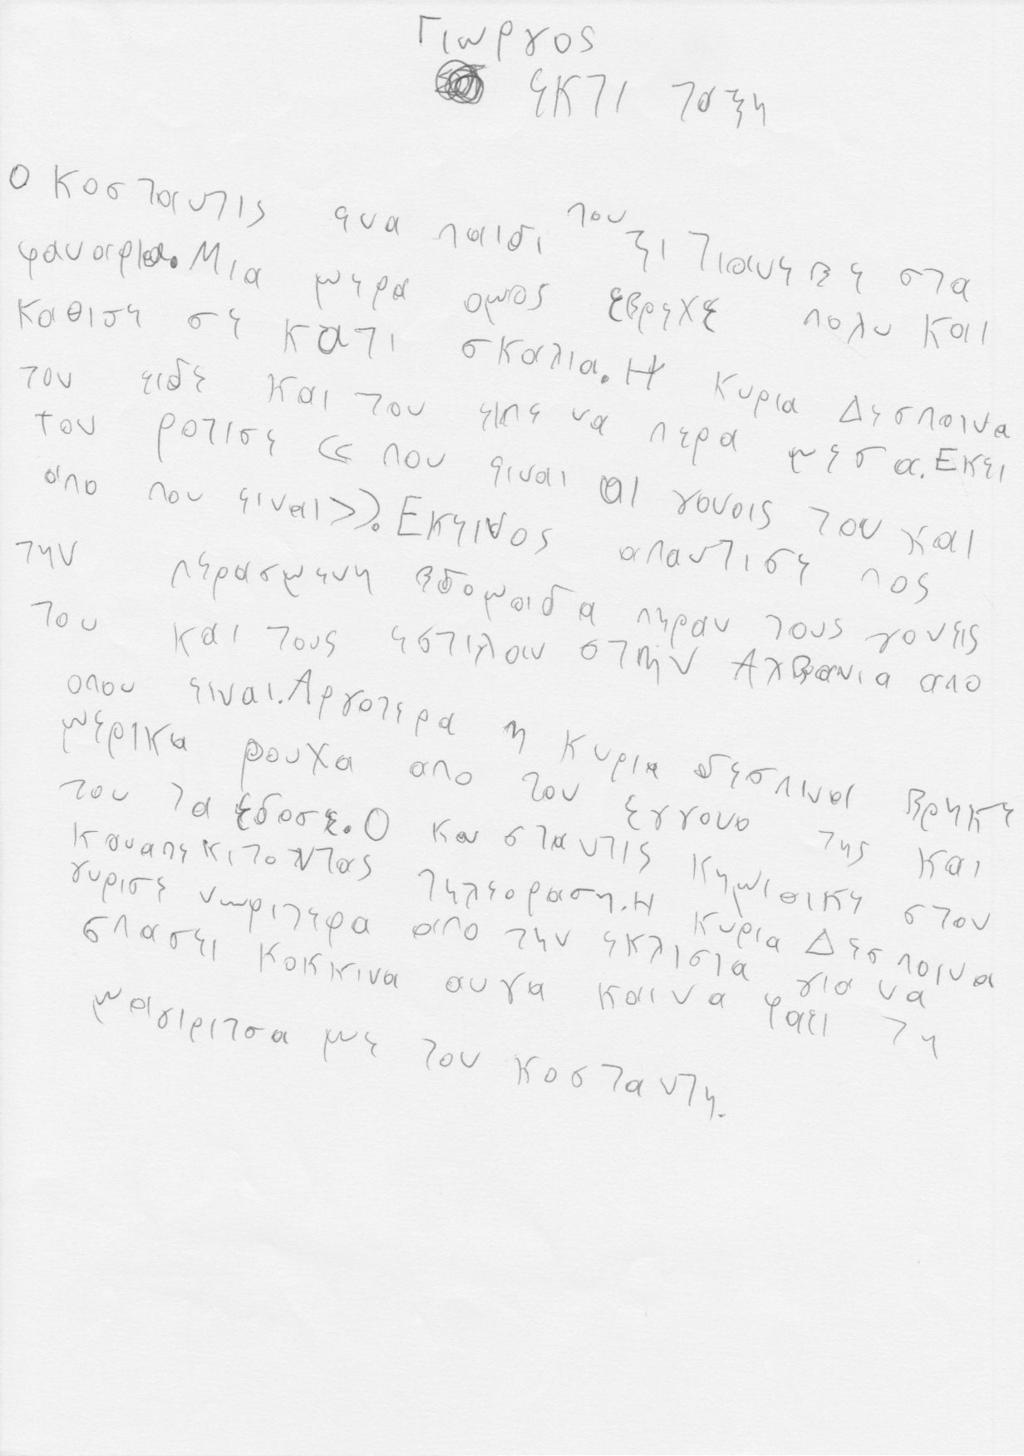 Γιωργος
εκτι ταξη
Ο Κοσταντις ενα παιδι που ζιτιανεβε στα
φαναρια. Μια μερα ομος εβρεχε πολυ και
καθισε σε κατι σκαλια. Η κυρια Δεσποινα
τον ειδε και του ειπε να περα μεσα. Εκει
τον ροτισε << που ειναι οι γονοις του και
απο που ειναι>>. Εκεινος απαντισε πος
την περασμενη βδομαδα πηραν τους γονεις
του και τους εστιλαν στην Αλβανια απο
οπου ειναι. Αργοτερα η κυρια δεσπινα βρηκε
μερικα ρουχα απο τον εγγονο της και
του τα εδοσε. Ο κωσταντις κημιθικε στον
καναπε κιτοντας τηλεοραση. Η κυρια Δεσποινα
γυρισε νωριτερα απο την εκλισια για να
σπασει κοκκινα αυγα και να φαει τη
μαγιριτσα με τον κοσταντη.